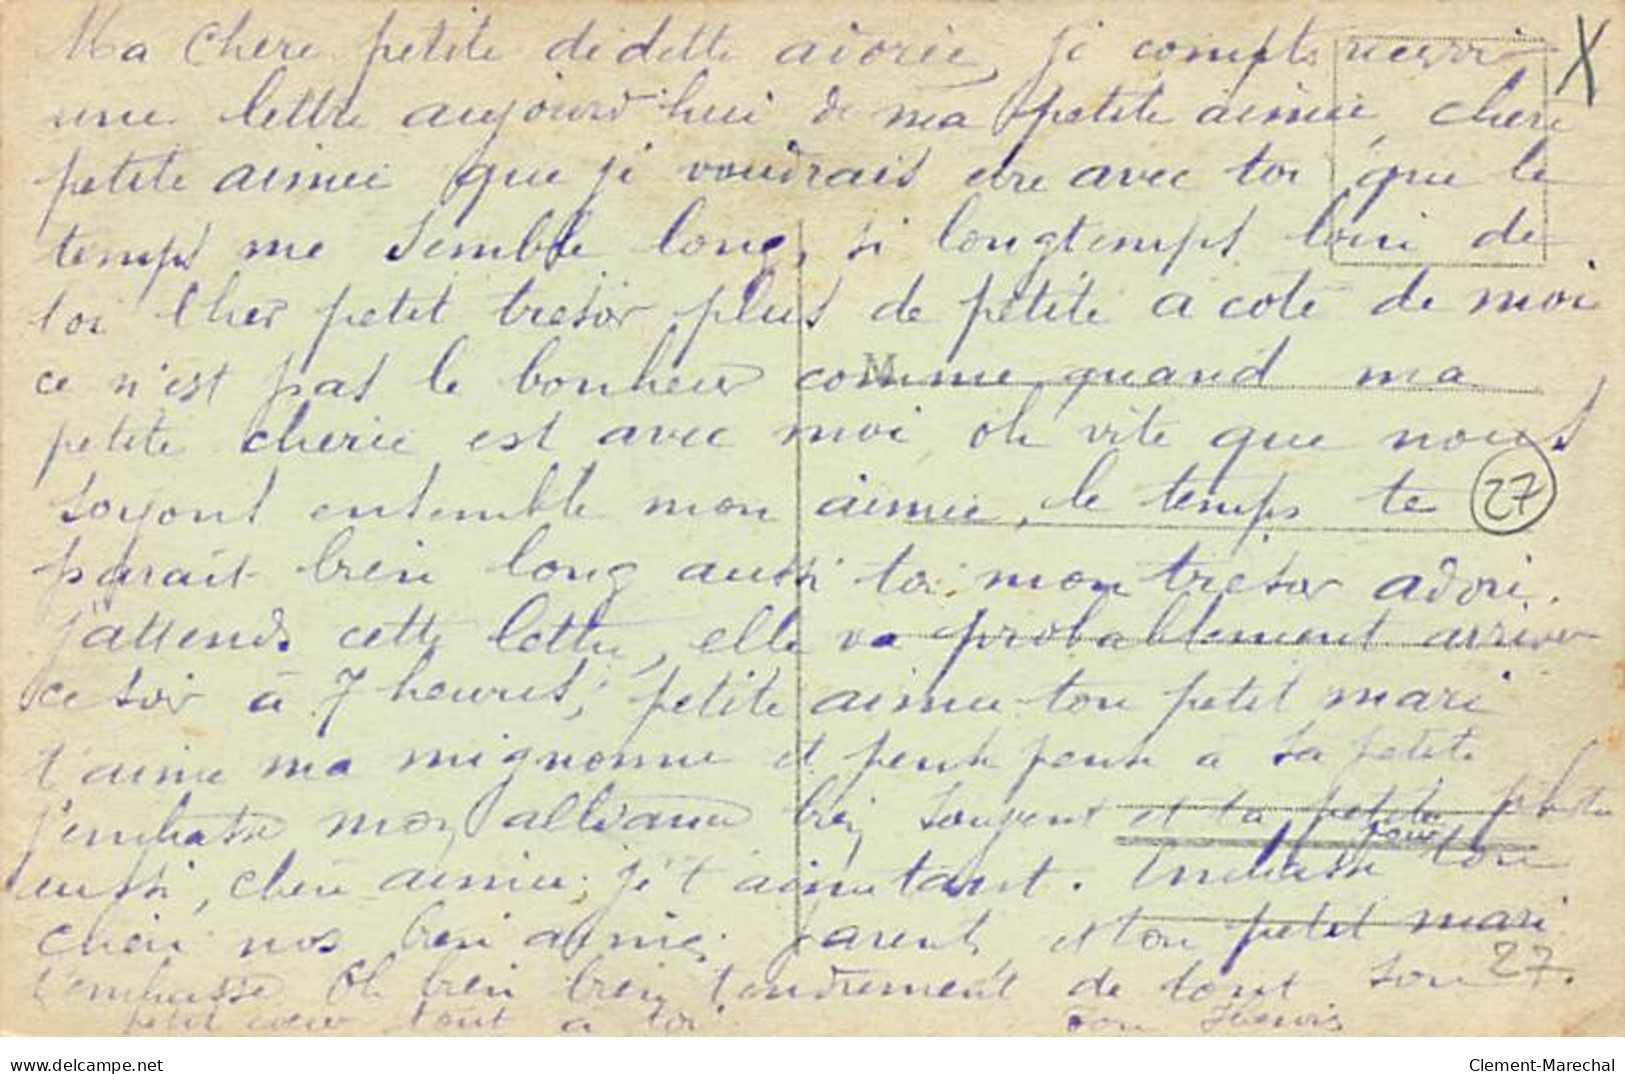 Ma chere petite didette adorée, je compte recevoir X
une lettre aujourd'hui de ma petite aimée, chere
petite aimée que je voudrais etre avec toi que le
temps me semble long, si longtemps loin de
toi cher petit tresor plus de petite a coté de moi
ce n'est pas le bonheur comme quand ma
petite cherie est avec moi oh vite que nous
soyons ensemble mon aimée, le temps te 27
parait bien long aussi toi mon tresor adoré.
j'attends cette lettre, elle va probablement arriver
ce soir à 7 heures, petite aimée ton petit mari
t'aime ma mignonne et pense a sa petite
j'embrasse mon alliance bien souvent et ta petite photo
aussi, chere aimée, je t'aime tant. Embrasse pour ton
cheri nos bien aimés parents et ton petit mari
t'embrasse Oh bien bien tendrement de tout son 27.
petit coeur tout a toi. ton
delcampe.net
Clement-Marechal